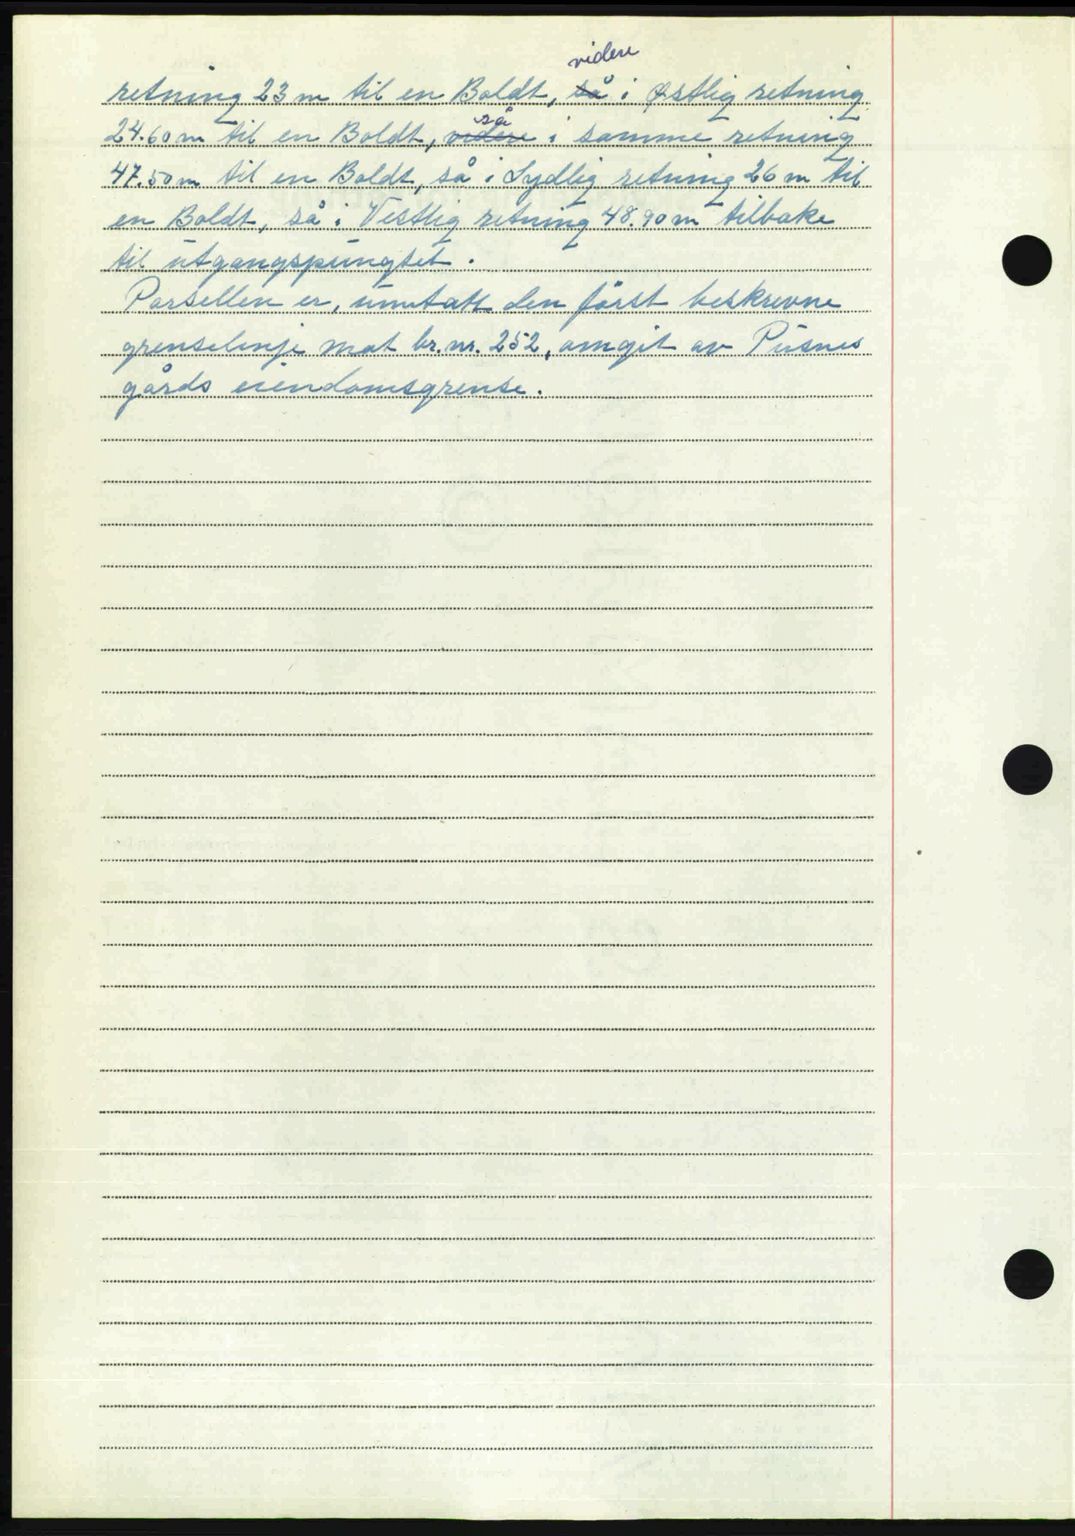 videre
retning 23 m til en Boldt, så i Østlig retning
så
24.60 m til en Boldt, videre i samme retning
47.50 m til en Boldt, så i Sydlig retning 26 m til
en Boldt, så i Vestlig retning 48.90 m tilbake
til utgangspungtet.
Parsellen er, unntatt den först beskrevne
grenselinje mot br. nr. 252, omgit av Pusnes
gårds eiendomsgrense.